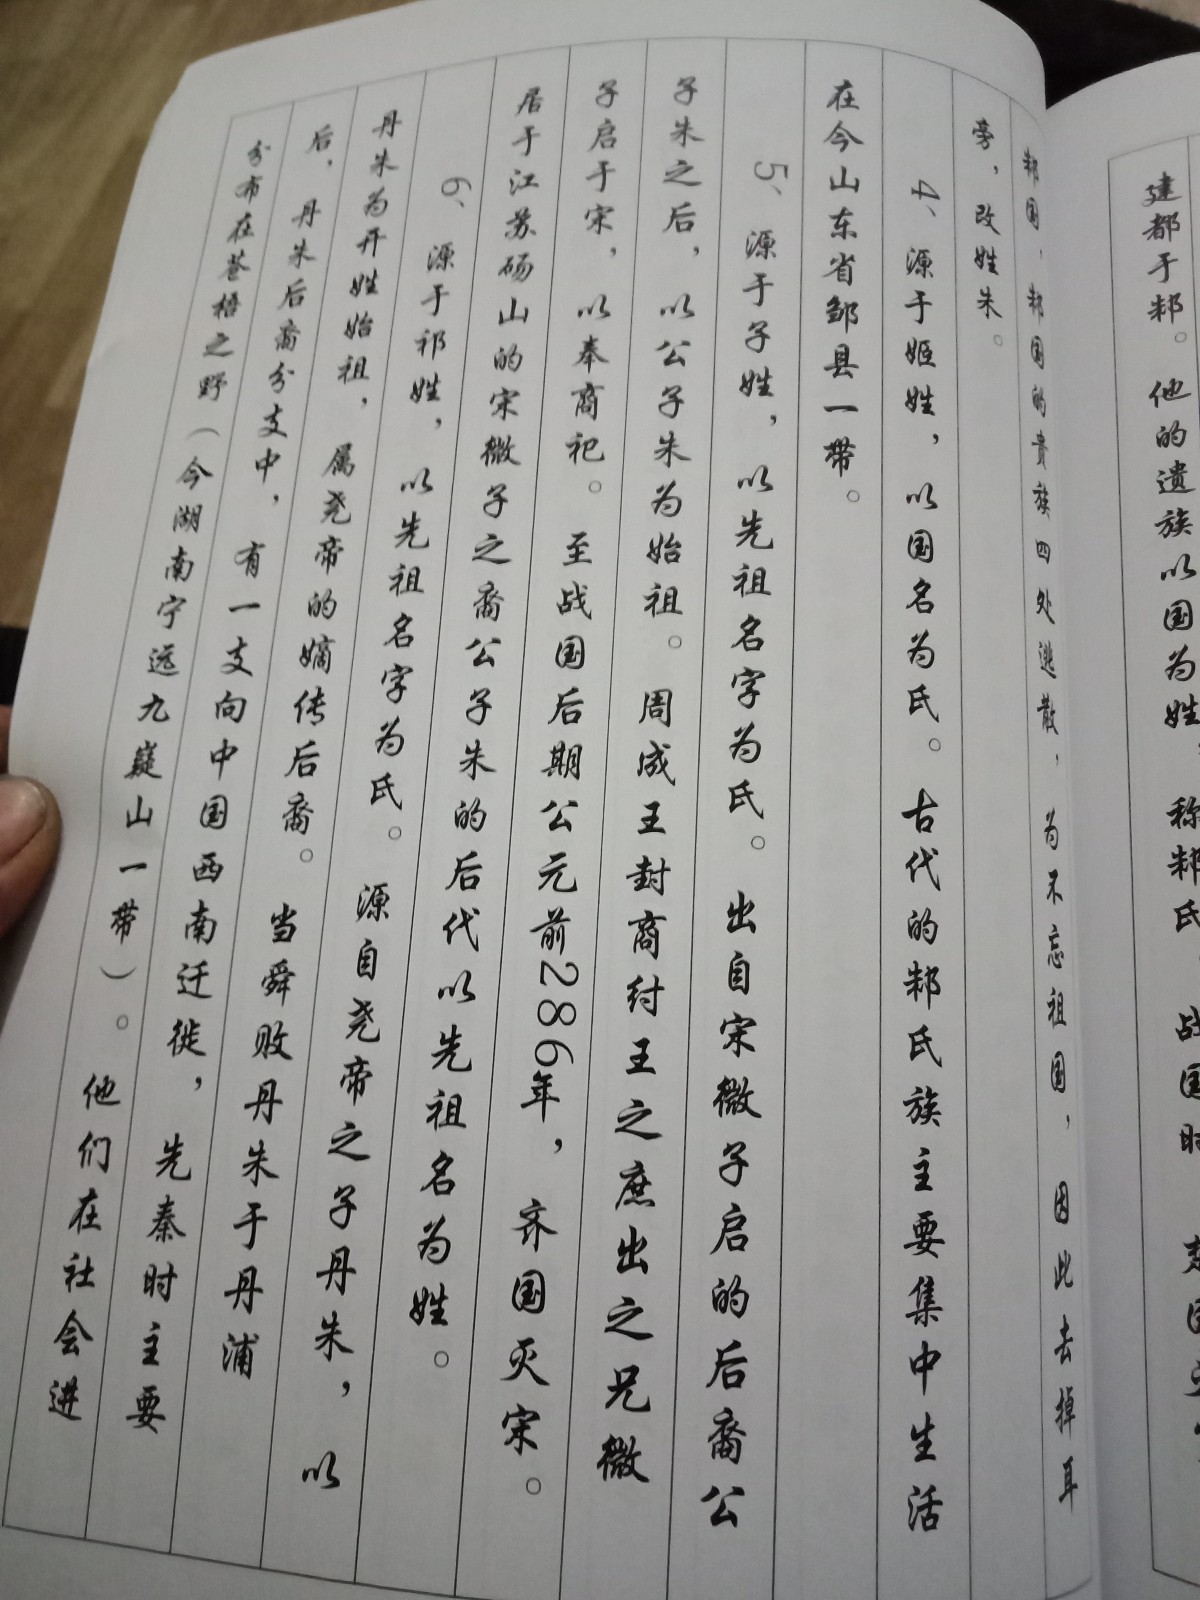 建都于邾。他的遗族以国为姓，称邾氏，战国时，楚国
邾国，邾国的贵族四处逃散，为不忘祖国，因此去掉耳
旁，改姓朱。
4、源于姬姓，以国名为氏。古代的邾氏族主要集中生活
在今山东省邹县一带。
5、源于子姓，以先祖名字为氏。出自宋微子启的后裔公
子朱之后，以公子朱为始祖。周成王封商纣王之庶出之兄微
子启于宋，以奉商祀。至战国后期公元前286年，齐国灭宋。
居于江苏砀山的宋微子之裔公子朱的后代以先祖名为姓。
6、源于祁姓，以先祖名字为氏。源自尧帝之子丹朱，以
丹朱为开姓始祖，属尧帝的嫡传后裔。当舜败丹朱于丹浦
后，丹朱后裔分支中，有一支向中国西南迁徙，先秦时主要
分布在苍梧之野（今湖南宁远九嶷山一带）。他们在社会进